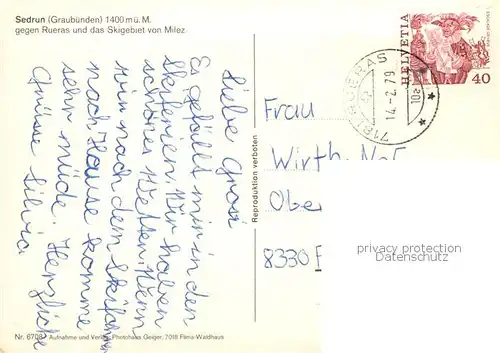 Sedrun (Graubünden) 1400 m ü. M.
gegen Rueras und das Skigebiet von Milez
HELVETIA
40
7181 RUERAS
14.-2.79
10
Liebe Grosi
Es gefällt mir in den
Skiferien. Wir haben
schönes Wetter. Wenn
wir nach dem Skifahren
nach Hause komme
sehr müde. Herzliche
Grüsse Silvia
Reproduktion verboten
Frau
Wirth
Obe
8330
privacy protection
Datenschutz
Nr. 6708 Aufnahme und Verlag Photohaus Geiger, 7018 Flims-Waldhaus